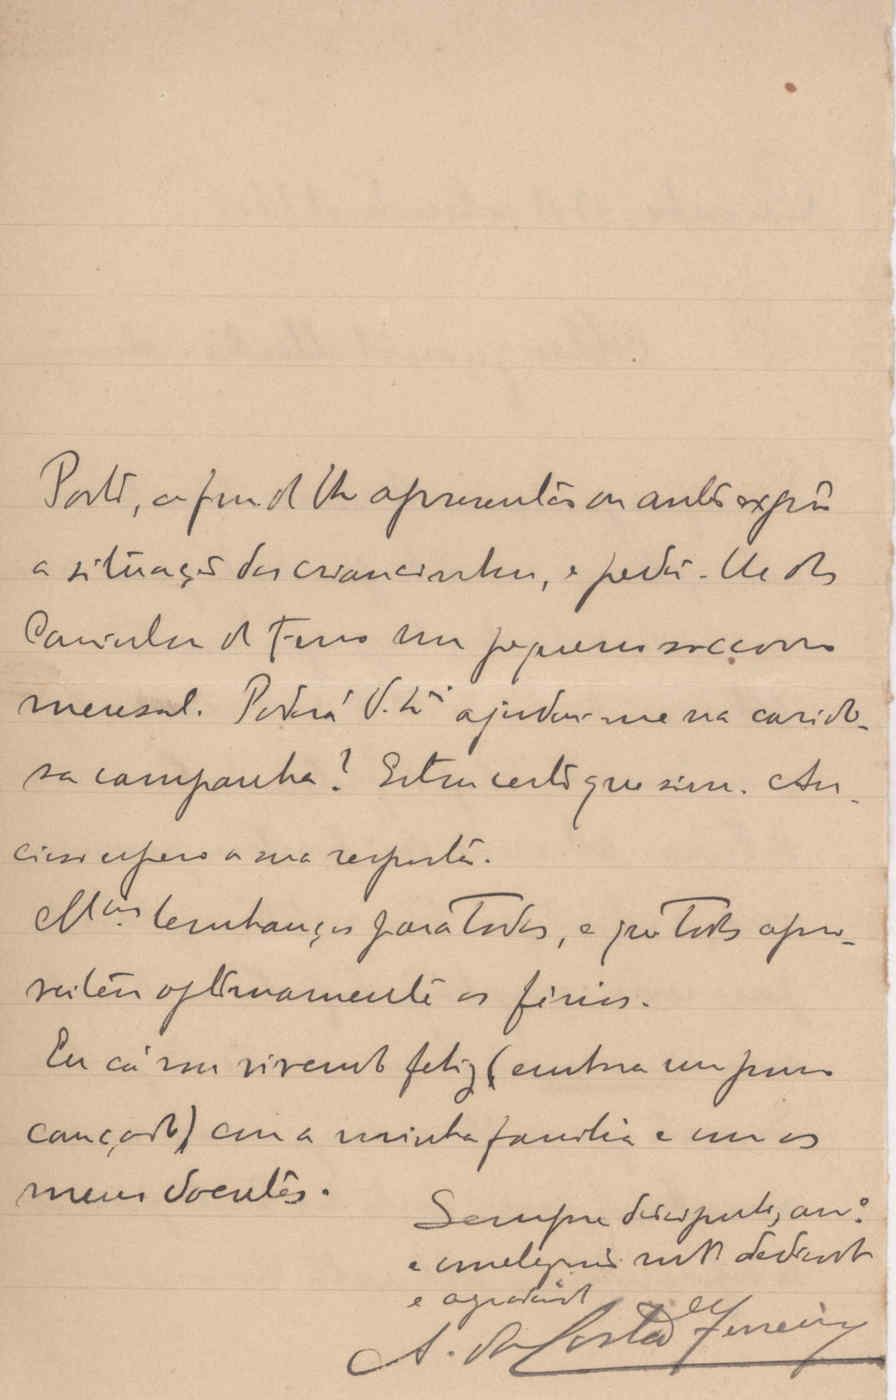 Porto, a fim de lhe apresentar ou antes expôr
a situação das criancinhas, e pedir-lhe dos
Caminhos de Ferro um pequeno soccorro
mensal. Poderá V. Ex.ª ajudar-me na carido-
sa campanha? Estou certo que sim. An-
cioso espero a sua resposta.
M.tas lembranças para Todos, e que Todos apro-
veitem optimamente as férias.
Eu cá vou vivendo feliz (embora um pouco
cançado) com a minha familia e com os
meus doentes.
Sempre discipulo, am.º
e collega mt.º dedicado
e agradecido
A. da Costa Ferreira